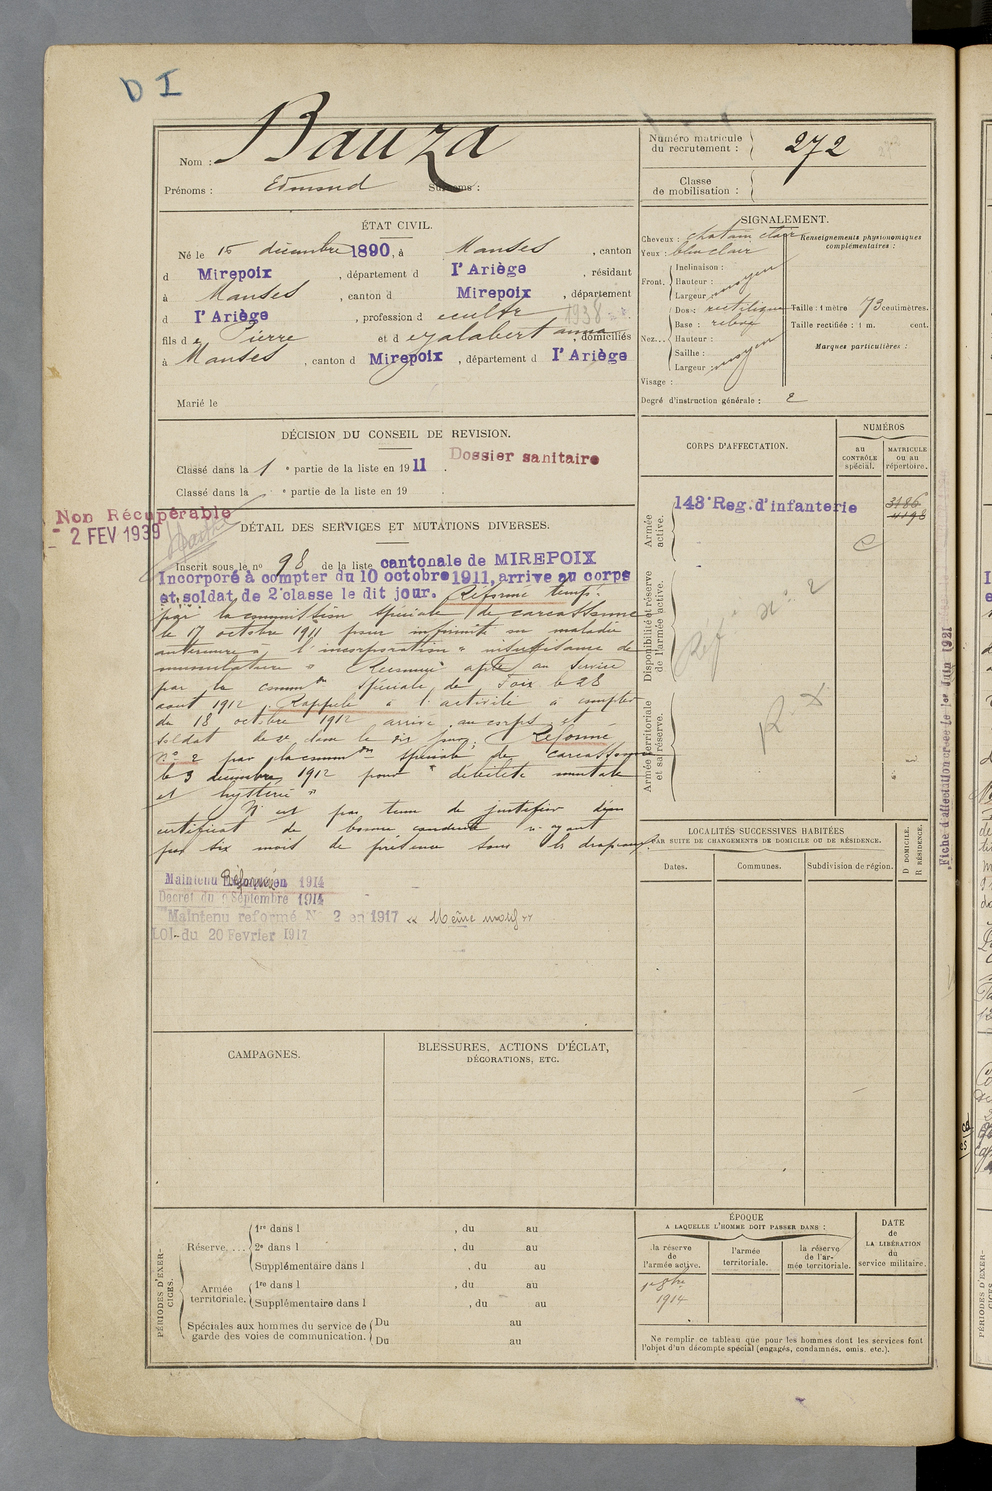 D I
Nom : Bauza
Prénoms : Edmond Surnoms :
Numéro matricule
du recrutement : 272
Classe
de mobilisation :
ÉTAT CIVIL.
Né le 15 décembre 1890, à Manses, canton
d Mirepoix, département d l'Ariège, résidant
à Manses, canton d Mirepoix, département
d l'Ariège, profession d cultr
1938
fils de Pierre et d Jalabert anna, domiciliés
à Manses, canton d Mirepoix, département d l'Ariège
Marié le
SIGNALEMENT.
Cheveux : chatain clair
Yeux : bleu clair
Front. Inclinaison :
Hauteur : moyen
Largeur :
Nez... Dos : rectiligne
Base : relevé
Hauteur :
Saillie : moyen
Largeur :
Visage :
Degré d'instruction générale : 2
Renseignements physionomiques
complémentaires :
Taille : 1 mètre 73 centimètres.
Taille rectifiée : 1 m. cent.
Marques particulières :
DÉCISION DU CONSEIL DE REVISION.
Classé dans la 1 e partie de la liste en 1911.
Dossier sanitaire
Classé dans la e partie de la liste en 19
Non Récupérable
- 2 FEV 1939
DÉTAIL DES SERVICES ET MUTATIONS DIVERSES.
Inscrit sous le no 98 de la liste cantonale de MIREPOIX
Incorporé à compter du 10 octobre 1911, arrive au corps
et soldat de 2e classe le dit jour. Réformé temp.
par la commission spéciale de Carcassonne
le 17 octobre 1911 pour infirmité ou maladie
antérieure à l'incorporation "insuffisance de
musculature" Reconnu apte au service
par la common spéciale de Foix le 28
aout 1912. Rappelé à l'activité à compter
du 18 octobre 1912 arrivé au corps et
soldat de 2e classe le dit jour. Réformé
no 2 par la common spéciale de Carcassonne
le 3 décembre 1912 pour "débilité mentale
et hystérie"
N'est pas tenu de justifier d'un
certificat de bonne conduite n'ayant
pas six mois de présence sous les drapeaux.
Maintenu Réformé en 1914
Décret du 9 Septembre 1914
Maintenu reformé N° 2 en 1917 « Même motif »
LOI du 20 Fevrier 1917
CORPS D'AFFECTATION.
NUMÉROS
au
CONTRÔLE
spécial.
MATRICULE
ou au
répertoire.
Armée
active.
143e Reg. d'infanterie
3186
4198
Disponibilité et réserve
de l'armée active.
Réf n° 2
Armée territoriale
et sa réserve.
R. X
LOCALITÉS SUCCESSIVES HABITÉES
PAR SUITE DE CHANGEMENTS DE DOMICILE OU DE RÉSIDENCE.
Dates.
Communes.
Subdivision de région.
D DOMICILE.
R RÉSIDENCE.
Fiche d'affectation créée le 1er Juin 1921
CAMPAGNES.
BLESSURES, ACTIONS D'ÉCLAT,
DÉCORATIONS, ETC.
PÉRIODES D'EXER-
CICES.
Réserve.... 1re dans l , du au
2e dans l , du au
Supplémentaire dans l , du au
Armée
territoriale. 1re dans l , du au
Supplémentaire dans l , du au
Spéciales aux hommes du service de
garde des voies de communication. Du au
Du au
ÉPOQUE
A LAQUELLE L'HOMME DOIT PASSER DANS :
la réserve
de
l'armée active.
l'armée
territoriale.
la réserve
de l'ar-
mée territoriale.
DATE
de
LA LIBÉRATION
du
service militaire.
1er 8bre
1914
Ne remplir ce tableau que pour les hommes dont les services font
l'objet d'un décompte spécial (engagés, condamnés, omis, etc.).